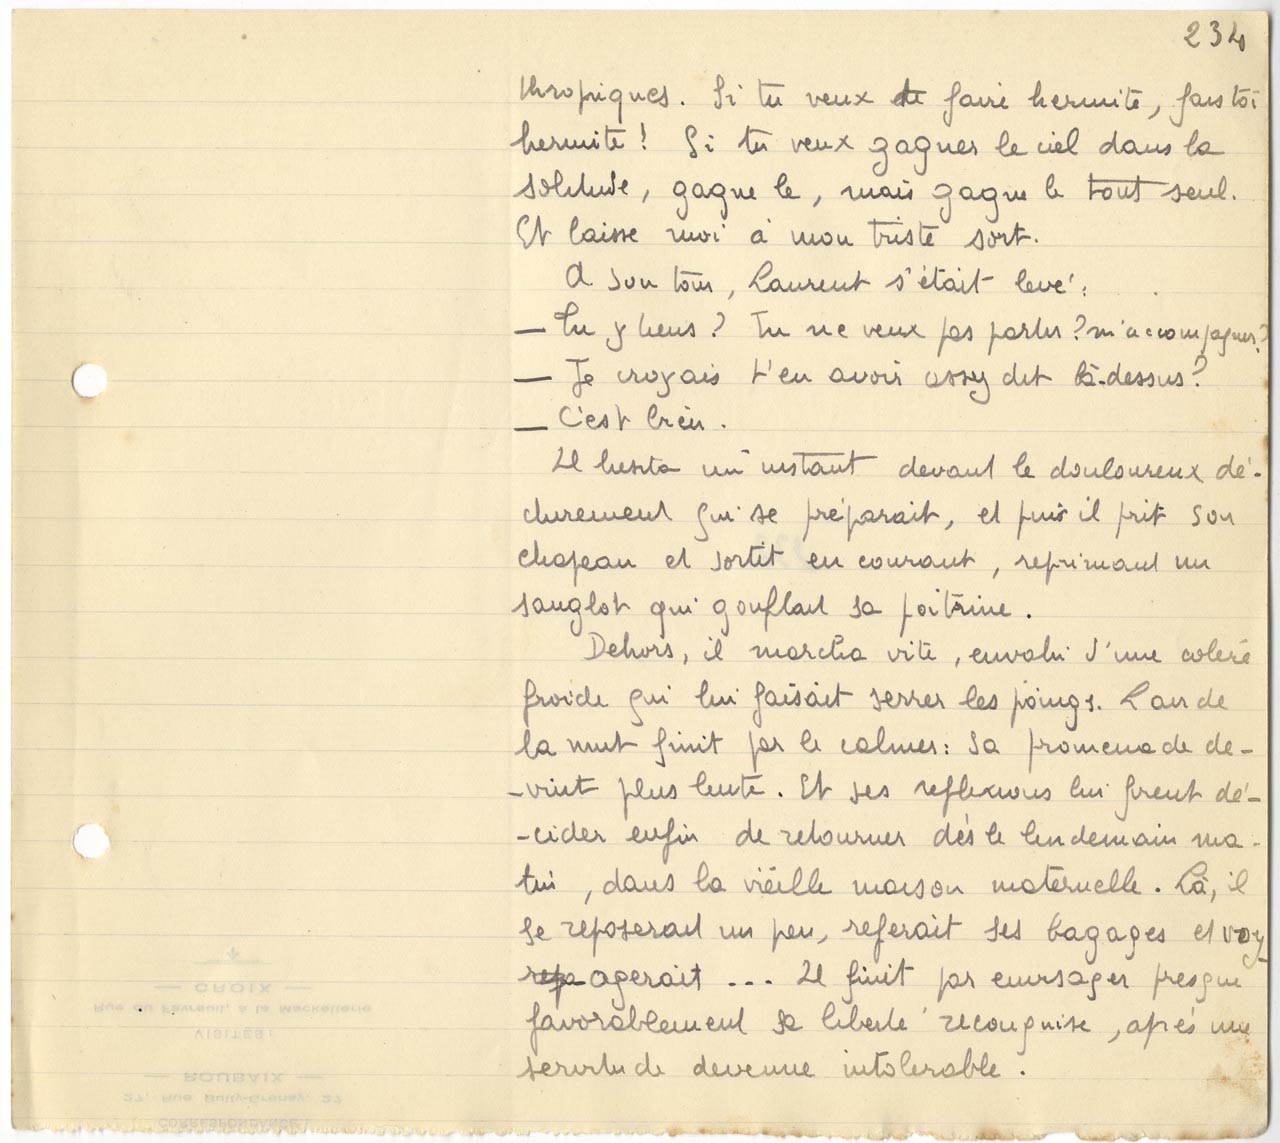 234
thropiques. Si tu veux te faire hermite, fais toi
hermite ! Si tu veux gagner le ciel dans la
solitude, gagne le, mais gagne le tout seul.
Et laisse moi à mon triste sort.
A son tour, Laurent s'était levé :
— Tu y tiens ? Tu ne veux pas partir ? m'accompagner ?
— Je croyais t'en avoir assez dit là-dessus ?
— C'est bien.
Il hésita un instant devant le douloureux dé-
chirement qui se préparait, et puis il prit son
chapeau et sortit en courant, reprimant un
sanglot qui gonflait sa poitrine.
Dehors, il marcha vite, envahi d'une colère
froide qui lui faisait serrer les poings. L'air de
la nuit finit par le calmer : sa promenade de-
-vint plus lente. Et ses reflexions lui firent dé-
-cider enfin de retourner dès le lendemain ma-
tin, dans la vieille maison maternelle. Là, il
se reposerait un peu, referait ses bagages et voy-
agerait ... Il finit par envisager presque
favorablement sa liberté reconquise, après une
servitude devenue intolérable.
CROIX
Rue du Favreuil, à la Mackellerie
VISITES :
ROUBAIX
27, Rue Bully-Grenay, 27
CORRESPONDANCE